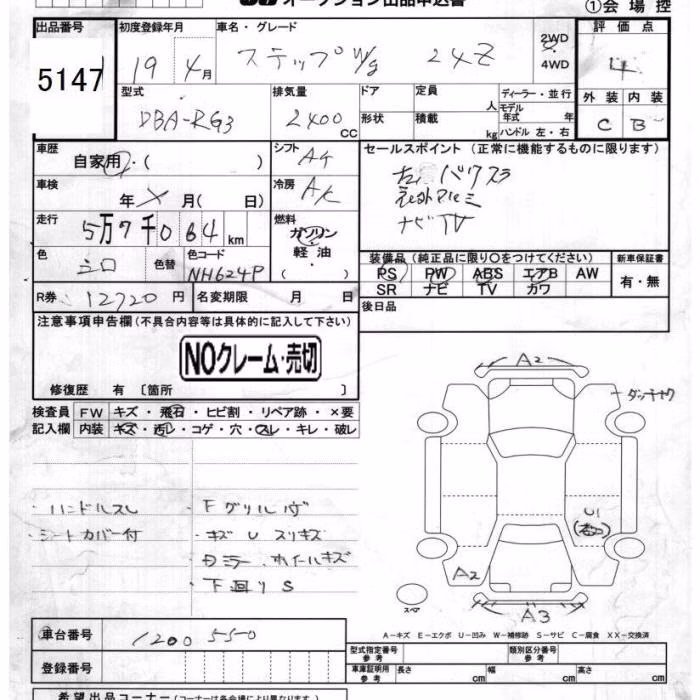 オークション出品申込書
①会場控
出品番号 初度登録年月 車名・グレード 評価点
5147 19 4月 ステップW/g 24Z 2WD 4WD 4
型式 排気量 ドア 定員 人 ディーラー・並行 外装 内装
DBA-RG3 2400 CC 形状 積載 kg モデル年式 年 ハンドル 左・右 C B
車歴 自家用・( ) シフト AT セールスポイント (正常に機能するものに限ります)
車検 年 月( 日) 冷房 AC
ナビTV
走行 5万7千064km 燃料 ガソリン 軽油・( )
色 色替 色コード NH624P
装備品 (純正品に限り○をつけてください) 新車保証書
PS PW ABS エアB AW 有・無
SR ナビ TV カワ
R券 12720円 名変期限 月 日 後日品
注意事項申告欄(不具合内容等は具体的に記入して下さい)
NOクレーム・売切
修復歴 有 〔箇所 〕
検査員 FW キズ・飛石・ヒビ割・リペア跡・×要
記入欄 内装 キズ・汚レ・コゲ・穴・スレ・キレ・破レ
A2
U1
A2
A3
スペア
・ハンドルスレ
・シートカバー付
・キズ U スリキズ
・ホイールキズ
・下回りS
A-キズ E-エクボ U-凹み W-補修跡 S-サビ C-腐食 XX-交換済
車台番号 1200550
登録番号
型式指定番号 参考 類別区分番号 参考
車庫証明用 参考 長さ cm 幅 cm 高さ cm
希望出品コーナー(コーナーは各会場により異なります)